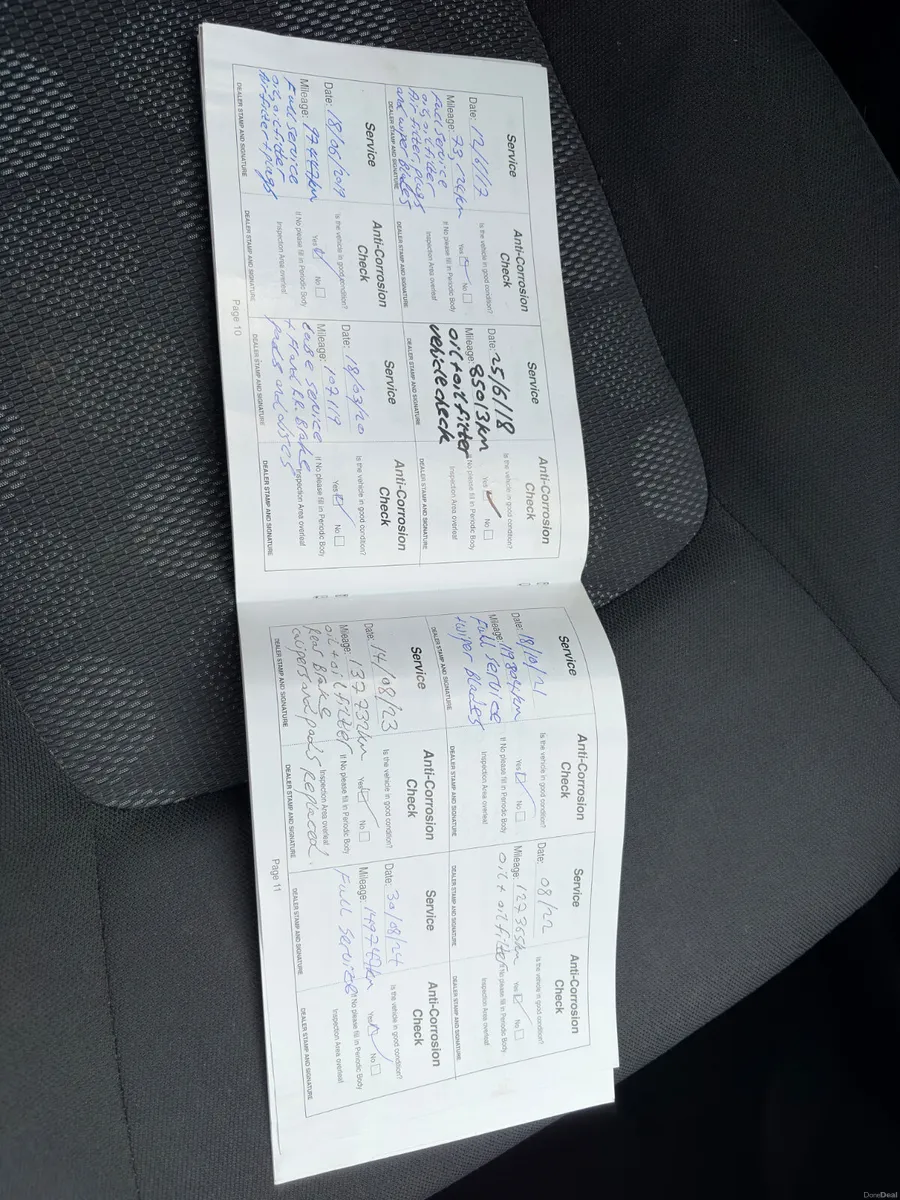 Service
Date: 12/6/17
Mileage: 73,724km
Full Service
oil, oil filter
Air filter, plugs
and wiper Blades
DEALER STAMP AND SIGNATURE
Anti-Corrosion
Check
Is the vehicle in good condition?
Yes No
If No please fill in Periodic Body
Inspection Area overleaf
DEALER STAMP AND SIGNATURE
Service
Date: 25/6/18
Mileage: 85013km
oil + oil filter
vehicle check
DEALER STAMP AND SIGNATURE
Anti-Corrosion
Check
Is the vehicle in good condition?
Yes No
No please fill in Periodic Body
Inspection Area overleaf
DEALER STAMP AND SIGNATURE
Service
Date: 18/06/2019
Mileage: 97447km
Full service
oil, oil filter
Air filter + plugs
DEALER STAMP AND SIGNATURE
Anti-Corrosion
Check
Is the vehicle in good condition?
Yes No
If No please fill in Periodic Body
Inspection Area overleaf
DEALER STAMP AND SIGNATURE
Service
Date: 18/03/20
Mileage: 107119
Lube service
+ Hand RR. Brake
pads and discs
DEALER STAMP AND SIGNATURE
Anti-Corrosion
Check
Is the vehicle in good condition?
Yes No
If No please fill in Periodic Body
Inspection Area overleaf
DEALER STAMP AND SIGNATURE
Page 10
Service
Date: 18/01/21
Mileage: 119804km
Full Service
+ wiper Blades
DEALER STAMP AND SIGNATURE
Anti-Corrosion
Check
Is the vehicle in good condition?
Yes No
If No please fill in Periodic Body
Inspection Area overleaf
DEALER STAMP AND SIGNATURE
Service
Date: 08/22
Mileage: 127365km
oil + oil filter
DEALER STAMP AND SIGNATURE
Anti-Corrosion
Check
Is the vehicle in good condition?
Yes No
No please fill in Periodic Body
Inspection Area overleaf
DEALER STAMP AND SIGNATURE
Service
Date: 14/08/23
Mileage: 137732km
oil + oil filter
Rear Brake
calipers and pad's Replaced.
DEALER STAMP AND SIGNATURE
Anti-Corrosion
Check
Is the vehicle in good condition?
Yes No
If No please fill in Periodic Body
Inspection Area overleaf
DEALER STAMP AND SIGNATURE
Service
Date: 30/08/24
Mileage: 149749km
Full Service
DEALER STAMP AND SIGNATURE
Anti-Corrosion
Check
Is the vehicle in good condition?
Yes No
If No please fill in Periodic Body
Inspection Area overleaf
DEALER STAMP AND SIGNATURE
Page 11
DoneDeal